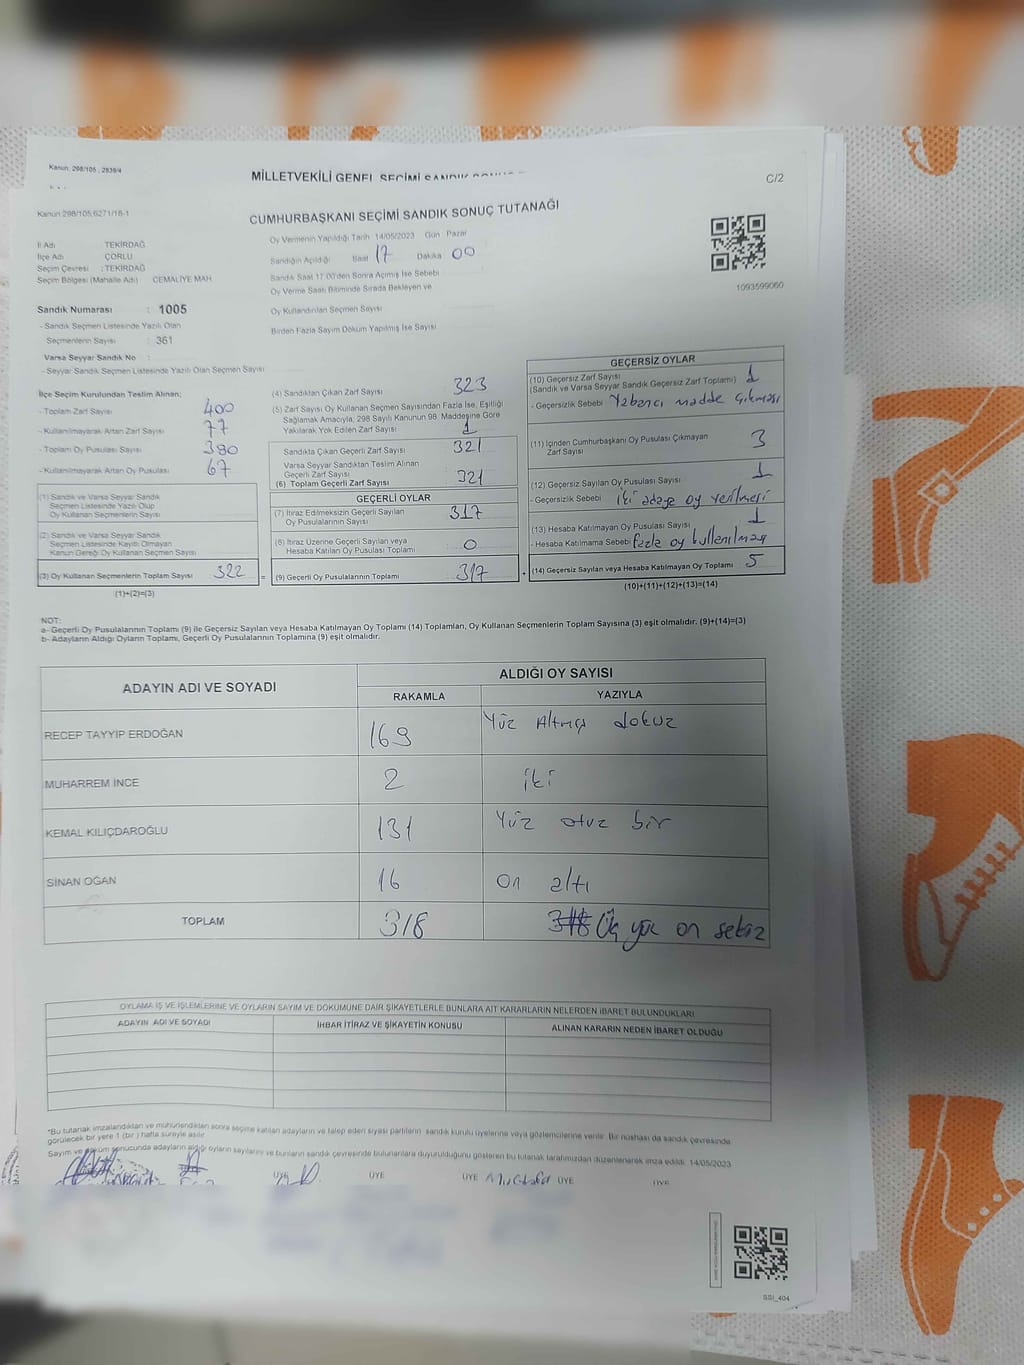 Kanun: 298/105, 2839/4
MİLLETVEKİLİ GENEL SEÇİMİ SANDIK
C/2
Kanun 298/105,6271/18-1
CUMHURBAŞKANI SEÇİMİ SANDIK SONUÇ TUTANAĞI
İl Adı : TEKİRDAĞ
İlçe Adı : ÇORLU
Seçim Çevresi : TEKİRDAĞ
Seçim Bölgesi (Mahalle Adı) CEMALİYE MAH
Oy Vermenin Yapıldığı Tarih 14/05/2023 Gün Pazar
Sandığın Açıldığı Saat 17 Dakika 00
Sandık Saat 17 00'den Sonra Açılmış İse Sebebi
Oy Verme Saati Bitiminde Sırada Bekleyen ve
Oy Kullandırılan Seçmen Sayısı
Birden Fazla Sayım Döküm Yapılmış İse Sayısı
1093599060
Sandık Numarası : 1005
- Sandık Seçmen Listesinde Yazılı Olan
Seçmenlerin Sayısı : 361
Varsa Seyyar Sandık No :
- Seyyar Sandık Seçmen Listesinde Yazılı Olan Seçmen Sayısı
İlçe Seçim Kurulundan Teslim Alınan;
- Toplam Zarf Sayısı 400
- Kullanılmayarak Artan Zarf Sayısı 77
- Toplam Oy Pusulası Sayısı 390
- Kullanılmayarak Artan Oy Pusulası 67
(1) Sandık ve Varsa Seyyar Sandık
Seçmen Listesinde Yazılı Olup
Oy Kullanan Seçmenlerin Sayısı
(2) Sandık ve Varsa Seyyar Sandık
Seçmen Listesinde Kayıtlı Olmayan
Kanun Gereği Oy Kullanan Seçmen Sayısı
(3) Oy Kullanan Seçmenlerin Toplam Sayısı 322 =
(1)+(2)=(3)
(4) Sandıktan Çıkan Zarf Sayısı 323
(5) Zarf Sayısı Oy Kullanan Seçmen Sayısından Fazla İse, Eşitliği
Sağlamak Amacıyla; 298 Sayılı Kanunun 98. Maddesine Göre
Yakılarak Yok Edilen Zarf Sayısı 1
Sandıkta Çıkan Geçerli Zarf Sayısı 321
Varsa Seyyar Sandıktan Teslim Alınan
Geçerli Zarf Sayısı
(6) Toplam Geçerli Zarf Sayısı 321
GEÇERLİ OYLAR
(7) İtiraz Edilmeksizin Geçerli Sayılan
Oy Pusulalarının Sayısı 317
(8) İtiraz Üzerine Geçerli Sayılan veya
Hesaba Katılan Oy Pusulası Toplamı 0
(9) Geçerli Oy Pusulalarının Toplamı 317 +
GEÇERSİZ OYLAR
(10) Geçersiz Zarf Sayısı 1
(Sandık ve Varsa Seyyar Sandık Geçersiz Zarf Toplamı)
- Geçersizlik Sebebi Yabancı madde çıkması
(11) İçinden Cumhurbaşkanı Oy Pusulası Çıkmayan
Zarf Sayısı 3
(12) Geçersiz Sayılan Oy Pusulası Sayısı 1
- Geçersizlik Sebebi iki adaya oy verilmesi
(13) Hesaba Katılmayan Oy Pusulası Sayısı 1
- Hesaba Katılmama Sebebi fazla oy kullanılması
(14) Geçersiz Sayılan veya Hesaba Katılmayan Oy Toplamı 5
(10)+(11)+(12)+(13)=(14)
NOT:
a- Geçerli Oy Pusulalarının Toplamı (9) ile Geçersiz Sayılan veya Hesaba Katılmayan Oy Toplamı (14) Toplamları, Oy Kullanan Seçmenlerin Toplam Sayısına (3) eşit olmalıdır. (9)+(14)=(3)
b- Adayların Aldığı Oyların Toplamı, Geçerli Oy Pusulalarının Toplamına (9) eşit olmalıdır.
ADAYIN ADI VE SOYADI
ALDIĞI OY SAYISI
RAKAMLA YAZIYLA
RECEP TAYYİP ERDOĞAN 169 Yüz Altmış dokuz
MUHARREM İNCE 2 iki
KEMAL KILIÇDAROĞLU 131 Yüz otuz bir
SİNAN OĞAN 16 On altı
TOPLAM 318 318 Üç yüz on sekiz
OYLAMA İŞ VE İŞLEMLERİNE VE OYLARIN SAYIM VE DÖKÜMÜNE DAİR ŞİKAYETLERLE BUNLARA AİT KARARLARIN NELERDEN İBARET BULUNDUKLARI
ADAYIN ADI VE SOYADI İHBAR İTİRAZ VE ŞİKAYETİN KONUSU ALINAN KARARIN NEDEN İBARET OLDUĞU
*Bu tutanak imzalandıktan ve mühürlendikten sonra seçime katılan adayların ve talep eden siyasi partilerin sandık kurulu üyelerine veya gözlemcilerine verilir. Bir nüshası da sandık çevresinde
görülecek bir yere 1 (bir) hafta süreyle asılır
Sayım ve döküm sonucunda adayların aldığı oyların sayılarını ve bunların sandık çevresinde bulunanlara duyurulduğunu gösteren bu tutanak tarafımızdan düzenlenerek imza edildi. 14/05/2023
ÜYE ÜYE ÜYE Mustafa ÜYE ÜYE
SSİ_404